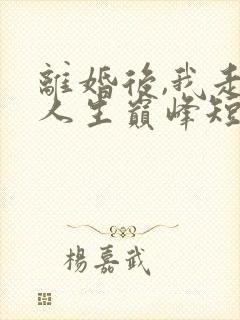 離婚後,我走
人生巔峰短
楊嘉武